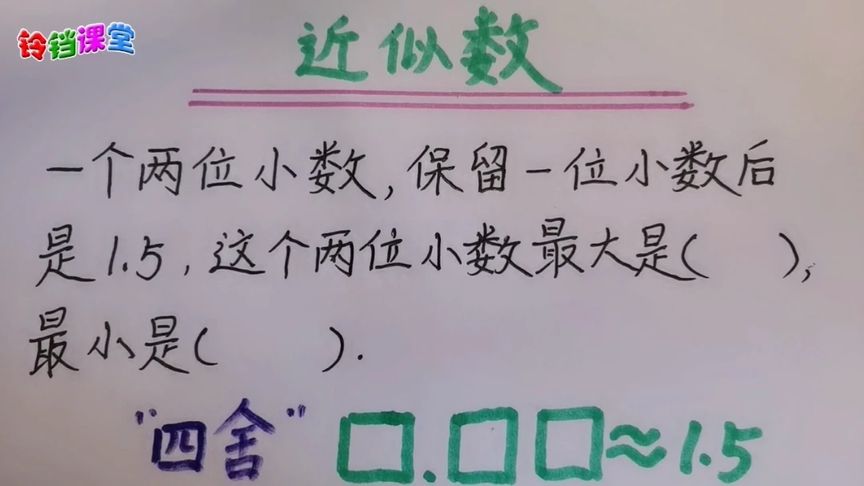 铃铛课堂
近似数
一个两位小数,保留一位小数后
是1.5,这个两位小数最大是( ),
最小是( ).
"四舍" □.□□≈1.5